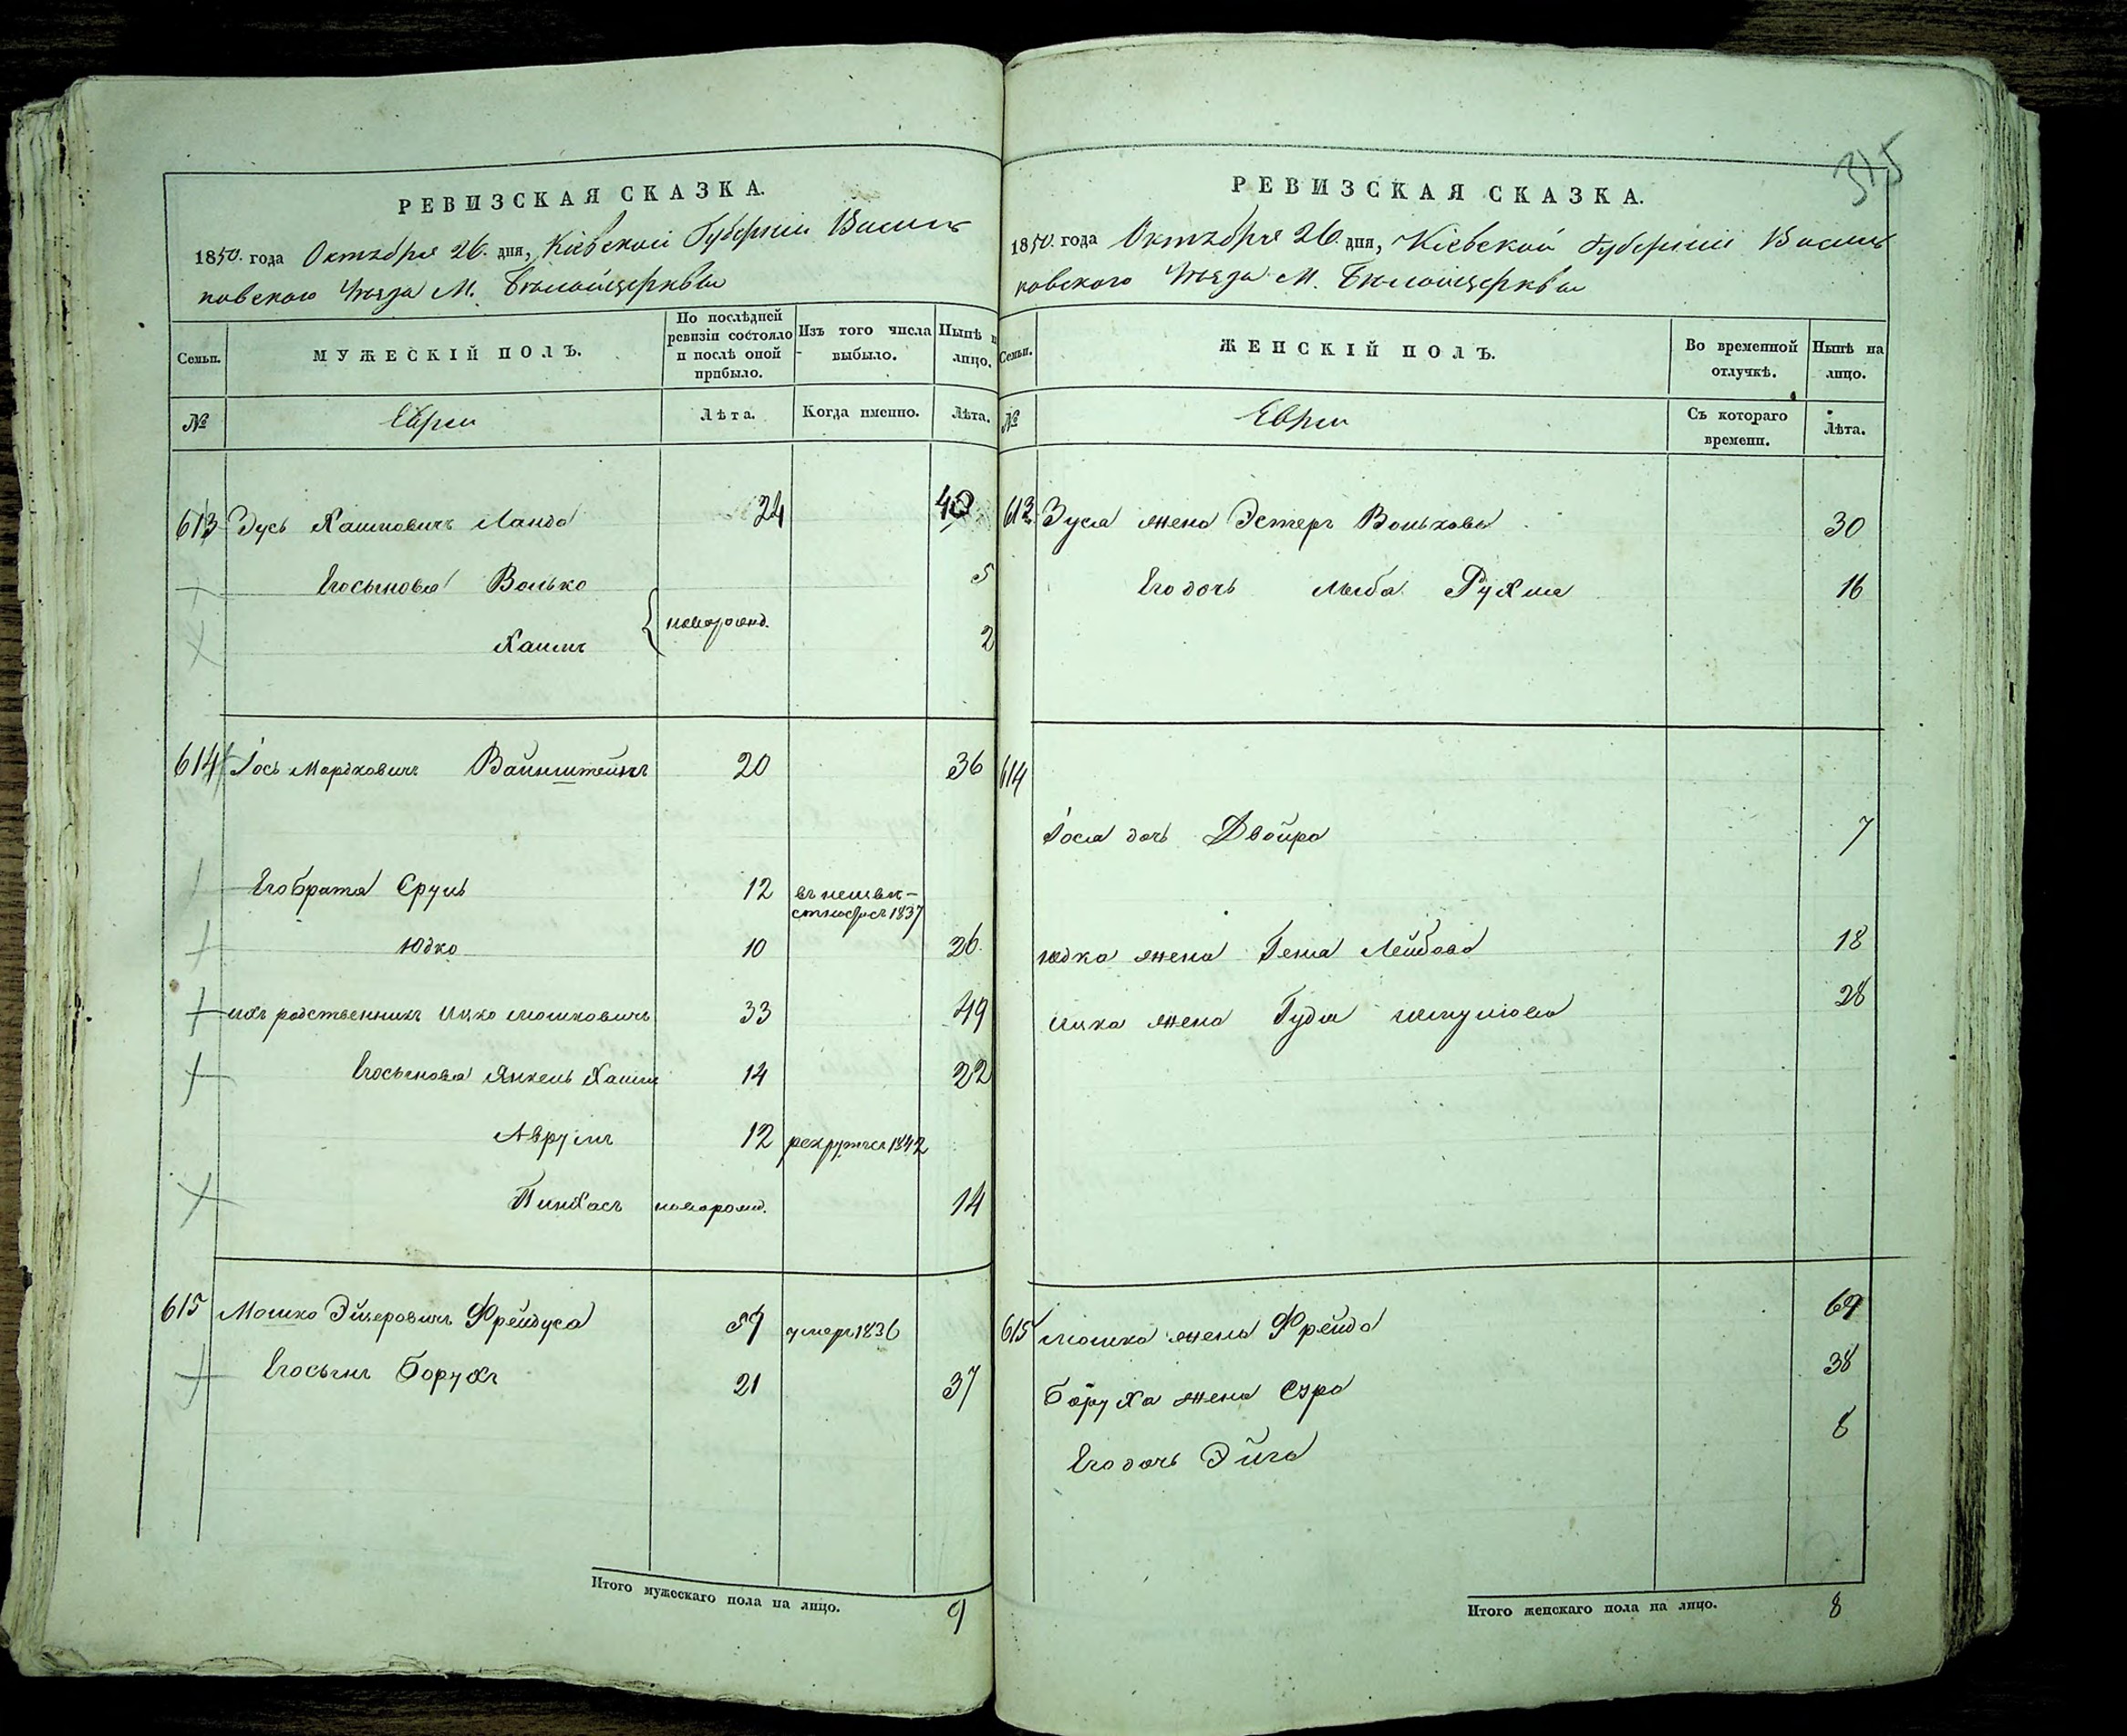 315
РЕВИЗСКАЯ СКАЗКА.
1850. года Октября 26. дня, Кіевской Губерніи Василь
ковского Уѣзда М. Бѣлойцеркви
Семьи.
МУЖЕСКІЙ ПОЛЪ.
По послѣдней ревизіи состояло и послѣ оной прибыло.
Изъ того числа выбыло.
Нынѣ на лицо.
№
Евреи
Лѣта.
Когда именно.
Лѣта.
613 Зусь Хаимовичъ Ланда 24 40
Его сыновья Волько 5
новорожд.
Хаимъ 2
614 Іось Мордковичъ Вайнштейнъ 20 36
Его братья Сруль 12 въ неизвѣ-
стности съ 1837
Юдко 10 26
ихъ родственникъ Ицко Мошковичъ 33 49
Его сыновья Янкель Хаимъ 14 22
Аврумъ 12 рекрутъ съ 1842
Пинхасъ новорожд. 14
615 Мошко Эйзеровичъ Фрейдуса 59 умеръ 1836
Его сынъ Борухъ 21 37
Итого мужескаго пола на лицо. 9
РЕВИЗСКАЯ СКАЗКА.
1850. года Октября 26. дня, Кіевской Губерніи Василь
ковского Уѣзда М. Бѣлойцеркви
Семьи.
ЖЕНСКІЙ ПОЛЪ.
Во временной отлучкѣ.
Нынѣ на лицо.
№
Евреи
Съ котораго времени.
Лѣта.
613 Зуся жена Эстеръ Волькова 30
Его дочь Лыба Рухля 16
614
Іося дочь Двойра 7
Юдка жена Геня Лейбова 18
Ицка жена Гудя 28
615 Мошка жена Фрейда 69
Боруха жена Сура 38
Его дочь Эйга 8
Итого женскаго пола на лицо. 8